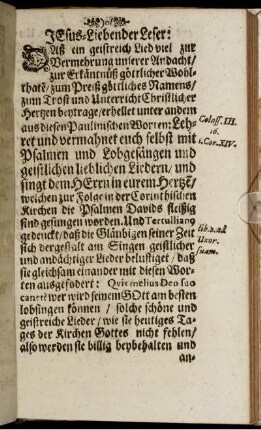 JEsus-Liebender Leser:
Daß ein geistreich Lied viel zur
Vermehrung unserer Andacht/
zur Erkäntnüß göttlicher Wohl-
thatẽ/ zum Preiß göttliches Namens/
zum Trost und Unterricht Christlicher
Hertzen beytrage/ erhellet unter andern
aus diesen Paulinischen Worten: Leh-
ret und vermahnet euch selbst mit
Psalmen und Lobgesängen und
geistlichen lieblichen Liedern/ und
singt dem HErrn in eurem Hertzẽ/
welchen zur Folge in der Corinthischen
Kirchen die Psalmen Davids fleißig
sind gesungen worden. Und Tertullianꝰ
gedenckt/ daß die Gläubigen seiner Zeit
sich dergestalt am Singen geistlicher
und andächtiger Lieder belustiget / daß
sie gleichsam einander mit diesen Wor-
ten ausgefodert: Qvis melius Deo suo
canere? wer wird seinem GOtt am besten
lobsingen können / solche schöne und
geistreiche Lieder/ wie sie heutiges Ta-
ges der Kirchen Gottes nicht fehlen/
also werden sie billig beybehalten und
an-
Coloss. III.
16.
1. Cor. XIV.
lib. 2. ad
Uxor.
suam.